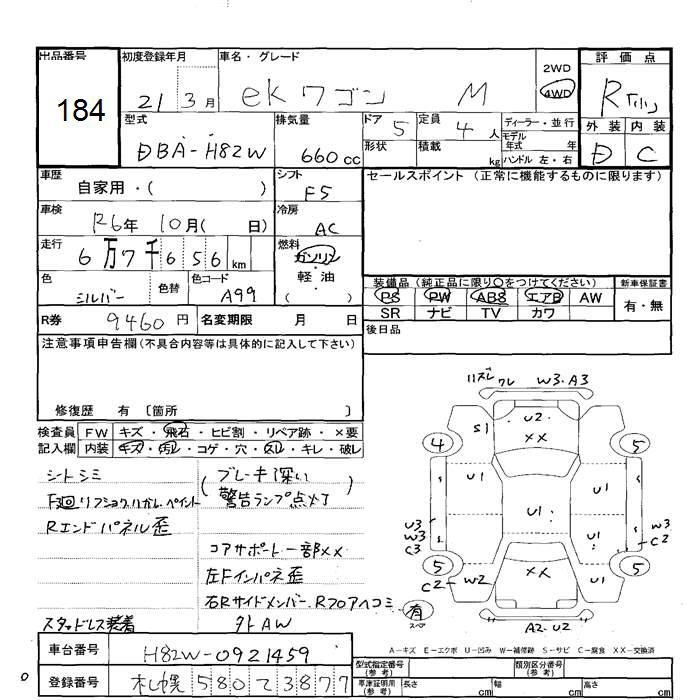 出品番号 184
初度登録年月 21 3月
車名・グレード ekワゴン M
2WD
4WD
評価点 R
外装 D 内装 C
型式 DBA-H82W
排気量 660cc
ドア 5
形状
定員 4人
積載 kg
ディーラー・並行
モデル年式 年
ハンドル 左・右
車歴 自家用・( )
シフト F5
セールスポイント (正常に機能するものに限ります)
車検 R6年 10月( 日)
冷房 AC
走行 6万7千656km
燃料 ガソリン
軽・油
( )
色 シルバー 色替 色コード A99
装備品 (純正品に限り○をつけてください)
新車保証書
PS PW ABS エアB AW
有・無
SR ナビ TV カワ
R券 9460円 名変期限 月 日
後日品
注意事項申告欄(不具合内容等は具体的に記入して下さい)
修復歴 有 〔箇所 〕
検査員 FW キズ・飛石・ヒビ割・リペア跡・×要
記入欄 内装 キズ・汚レ・コゲ・穴・スレ・キレ・破レ
シートシミ
(ブレーキ深い
警告ランプ点灯)
Rエンドパネル歪
コアサポート一部××
左Fインパネ歪
右Rサイドメンバー、Rフロアヘコミ
スタッドレス装着
外AW
W3・A3
S1 U2 ××
4 5
U1 U1 U1
U3 W3 C3
W3 C2
5 5
C2 W2 ×× U1
有 スペア
A2・U2
A-キズ E-エクボ U-凹み W-補修跡 S-サビ C-腐食 XX-交換済
車台番号 H82W-0921459
登録番号 札幌 580 て 3877
型式指定番号(参考) 類別区分番号(参考)
車庫証明用(参考) 長さ cm 幅 cm 高さ cm